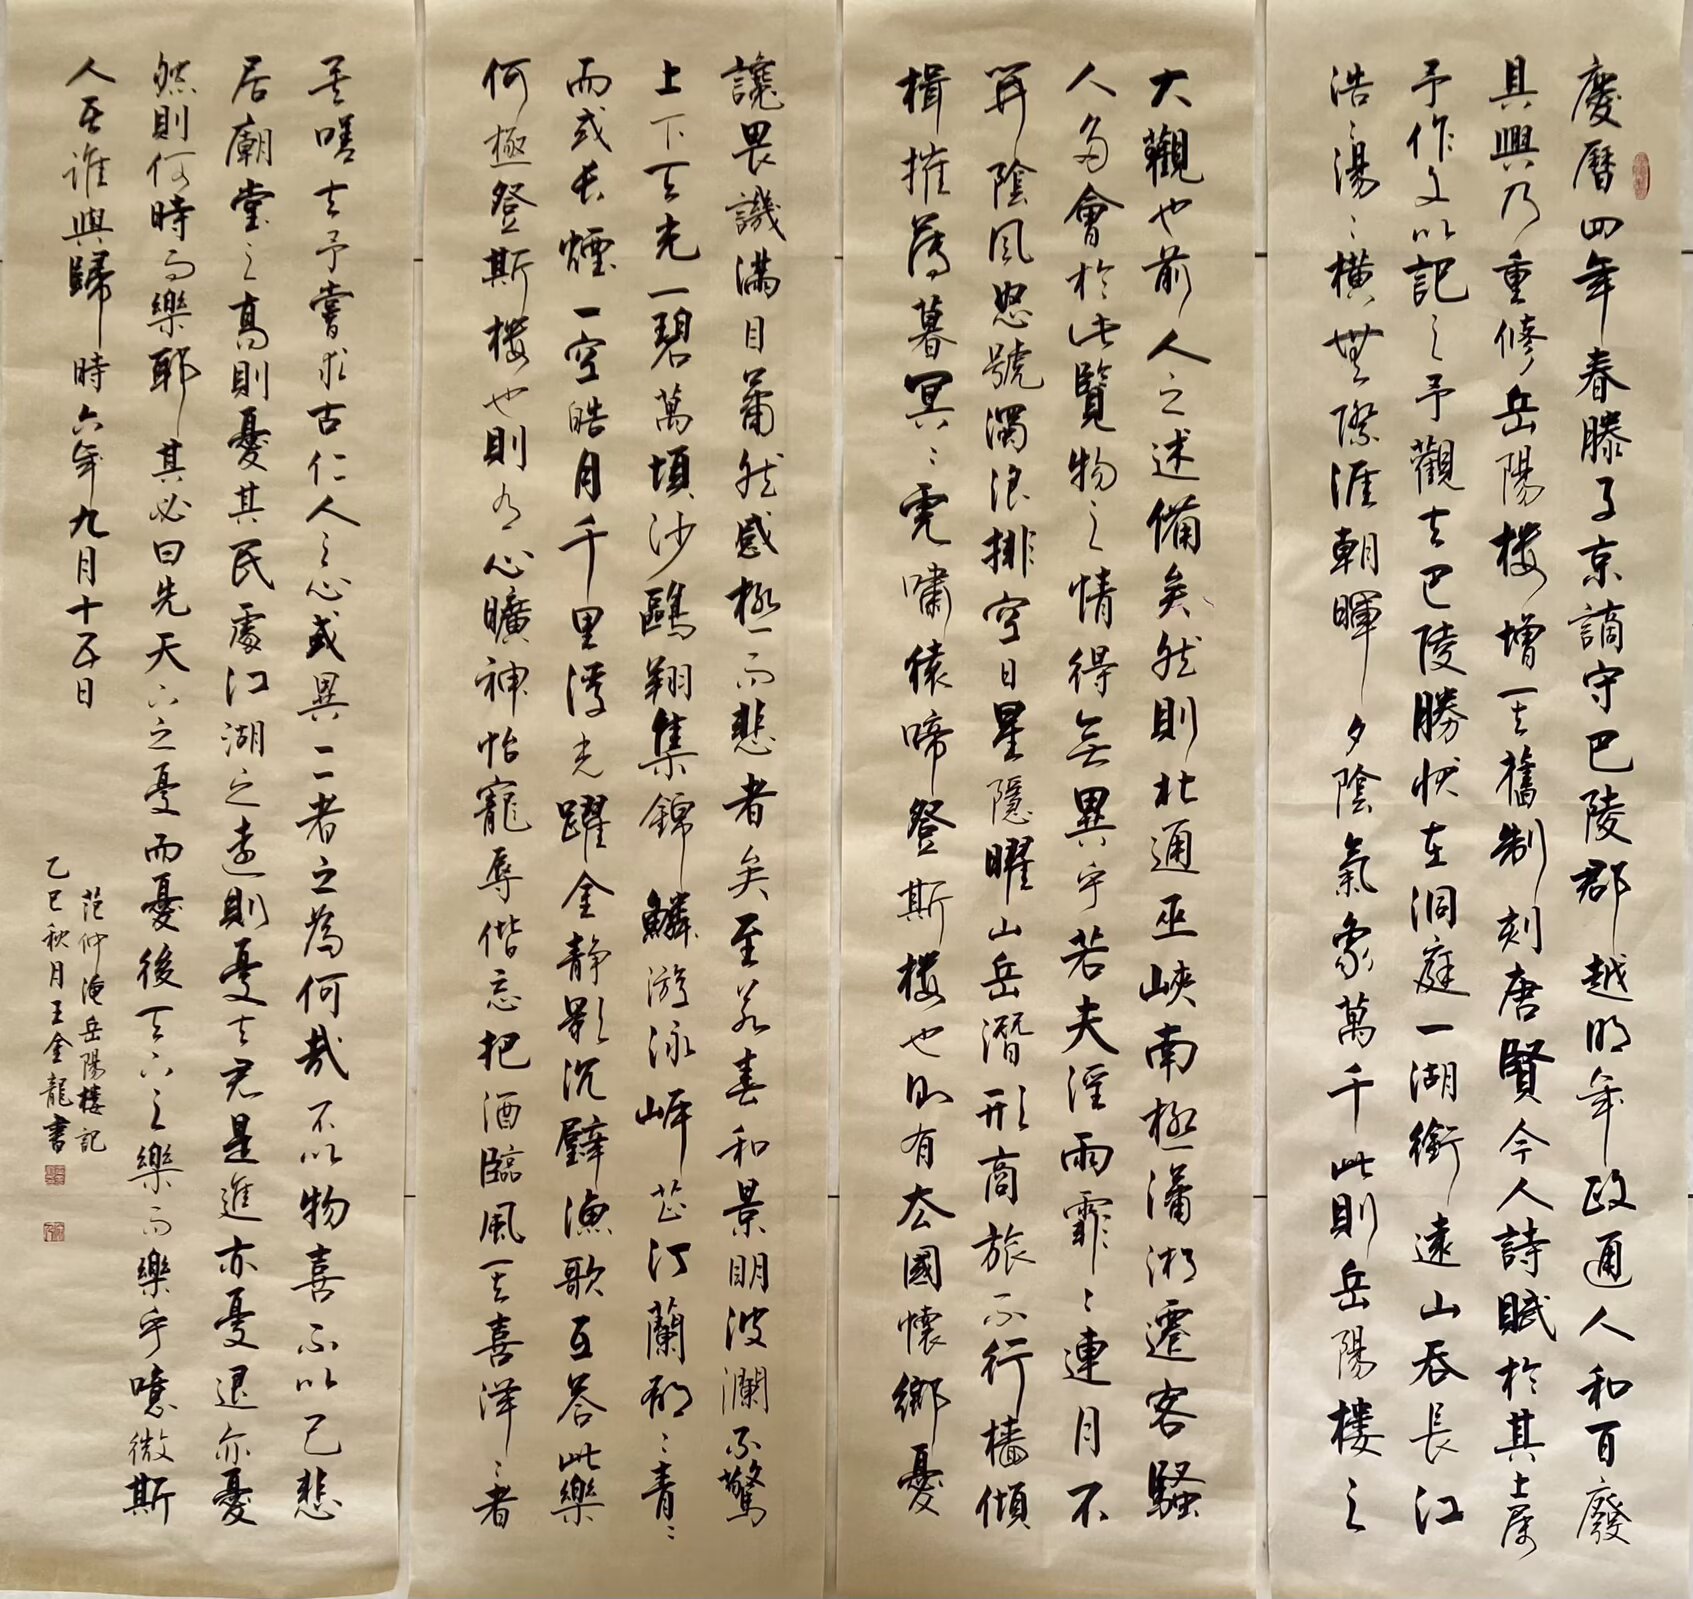 慶曆四年春滕子京謫守巴陵郡越明年政通人和百廢
具興乃重修岳陽樓增其舊制刻唐賢今人詩賦於其上屬
予作文以記之予觀夫巴陵勝狀在洞庭一湖銜遠山吞長江
浩浩湯湯橫無際涯朝暉夕陰氣象萬千此則岳陽樓之
大觀也前人之述備矣然則北通巫峽南極瀟湘遷客騷
人多會於此覽物之情得無異乎若夫淫雨霏霏連月不
開陰風怒號濁浪排空日星隱曜山岳潛形商旅不行檣傾
楫摧薄暮冥冥虎嘯猿啼登斯樓也則有去國懷鄉憂
讒畏譏滿目蕭然感極而悲者矣至若春和景明波瀾不驚
上下天光一碧萬頃沙鷗翔集錦鱗游泳岸芷汀蘭郁郁青青
而或長煙一空皓月千里浮光躍金靜影沉璧漁歌互答此樂
何極登斯樓也則有心曠神怡寵辱偕忘把酒臨風其喜洋洋者
矣嗟夫予嘗求古仁人之心或異二者之為何哉不以物喜不以己悲
居廟堂之高則憂其民處江湖之遠則憂其君是進亦憂退亦憂
然則何時而樂耶其必曰先天下之憂而憂後天下之樂而樂乎噫微斯
人吾誰與歸時六年九月十五日
范仲淹岳陽樓記
乙巳秋月王金龍書